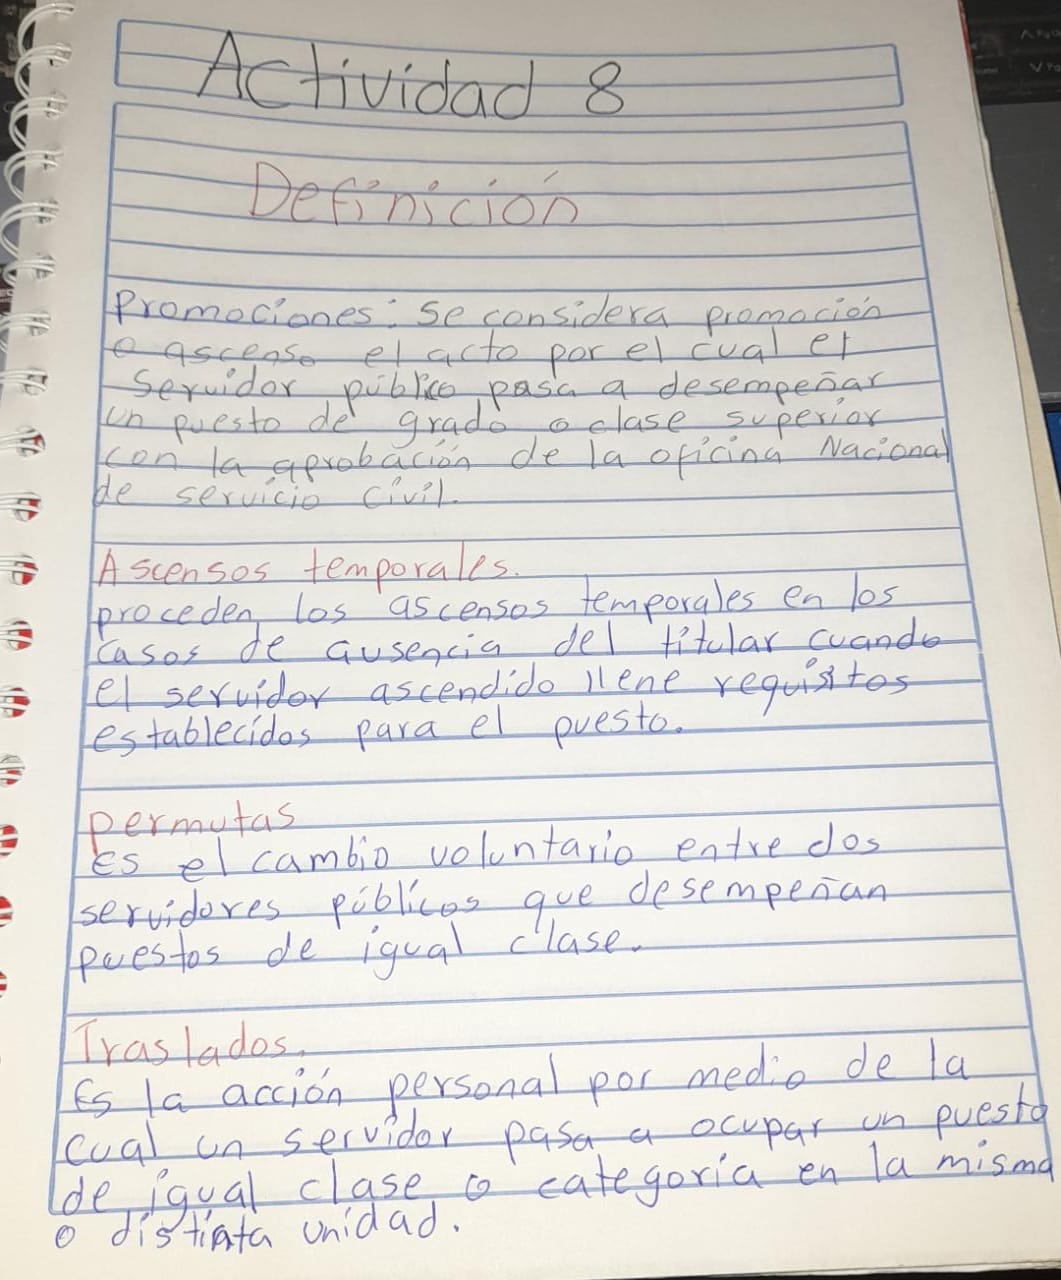 Actividad 8
Definición
Promociones: Se considera promoción
o ascenso el acto por el cual el
Servidor público pasa a desempeñar
un puesto de grado o clase superior
con la aprobación de la oficina Nacional
de servicio civil.
Ascensos temporales.
proceden los ascensos temporales en los
casos de ausencia del titular cuando
el servidor ascendido llene requisitos
establecidos para el puesto.
permutas
Es el cambio voluntario entre dos
servidores públicos que desempeñan
puestos de igual clase.
Traslados.
Es la acción personal por medio de la
cual un servidor pasa a ocupar un puesto
de igual clase o categoría en la misma
o distinta unidad.